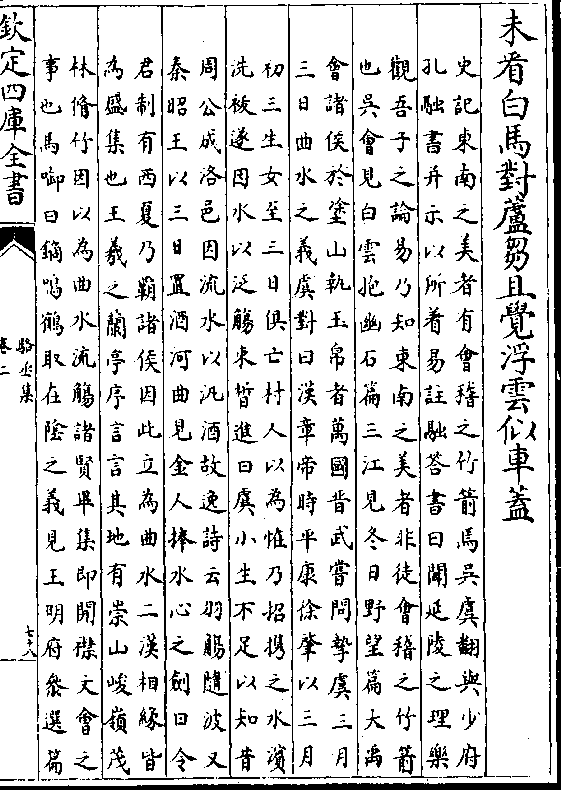 未看白馬對蘆芻且覺浮雲似車蓋
史記東南之美者有會稽之竹箭焉吳虞翻與少府
孔融書并示以所着易註融荅書曰聞延陵之理樂
觀吾子之論易乃知東南之美者非徒會稽之竹箭
也吳會見白雲抱幽石篇三江見冬日野望篇大禹
會諸侯於塗山執玉帛者萬國晋武嘗問摯虞三月
三日曲水之義虞對曰漢章帝時平康徐肇以三月
初三生女至三日俱亡村人以為恠乃招携之水濱
洗祓遂因水以泛觴束晳進曰虞小生不足以知昔
周公成洛邑因流水以汎酒故逸詩云羽觴隨波又
秦昭王以三日置酒河曲見金人捧水心之劍曰令
君制有西夏乃霸諸侯因此立為曲水二漢相緣皆
為盛集也王羲之蘭亭序言言其地有崇山峻嶺茂
林脩竹因以為曲水流觴諸賢畢集即開襟文會之
事也馬啣曰鏑鳴鶴取在陰之義見王明府參選篇
欽定四庫全書
駱丞集
卷二
七十八